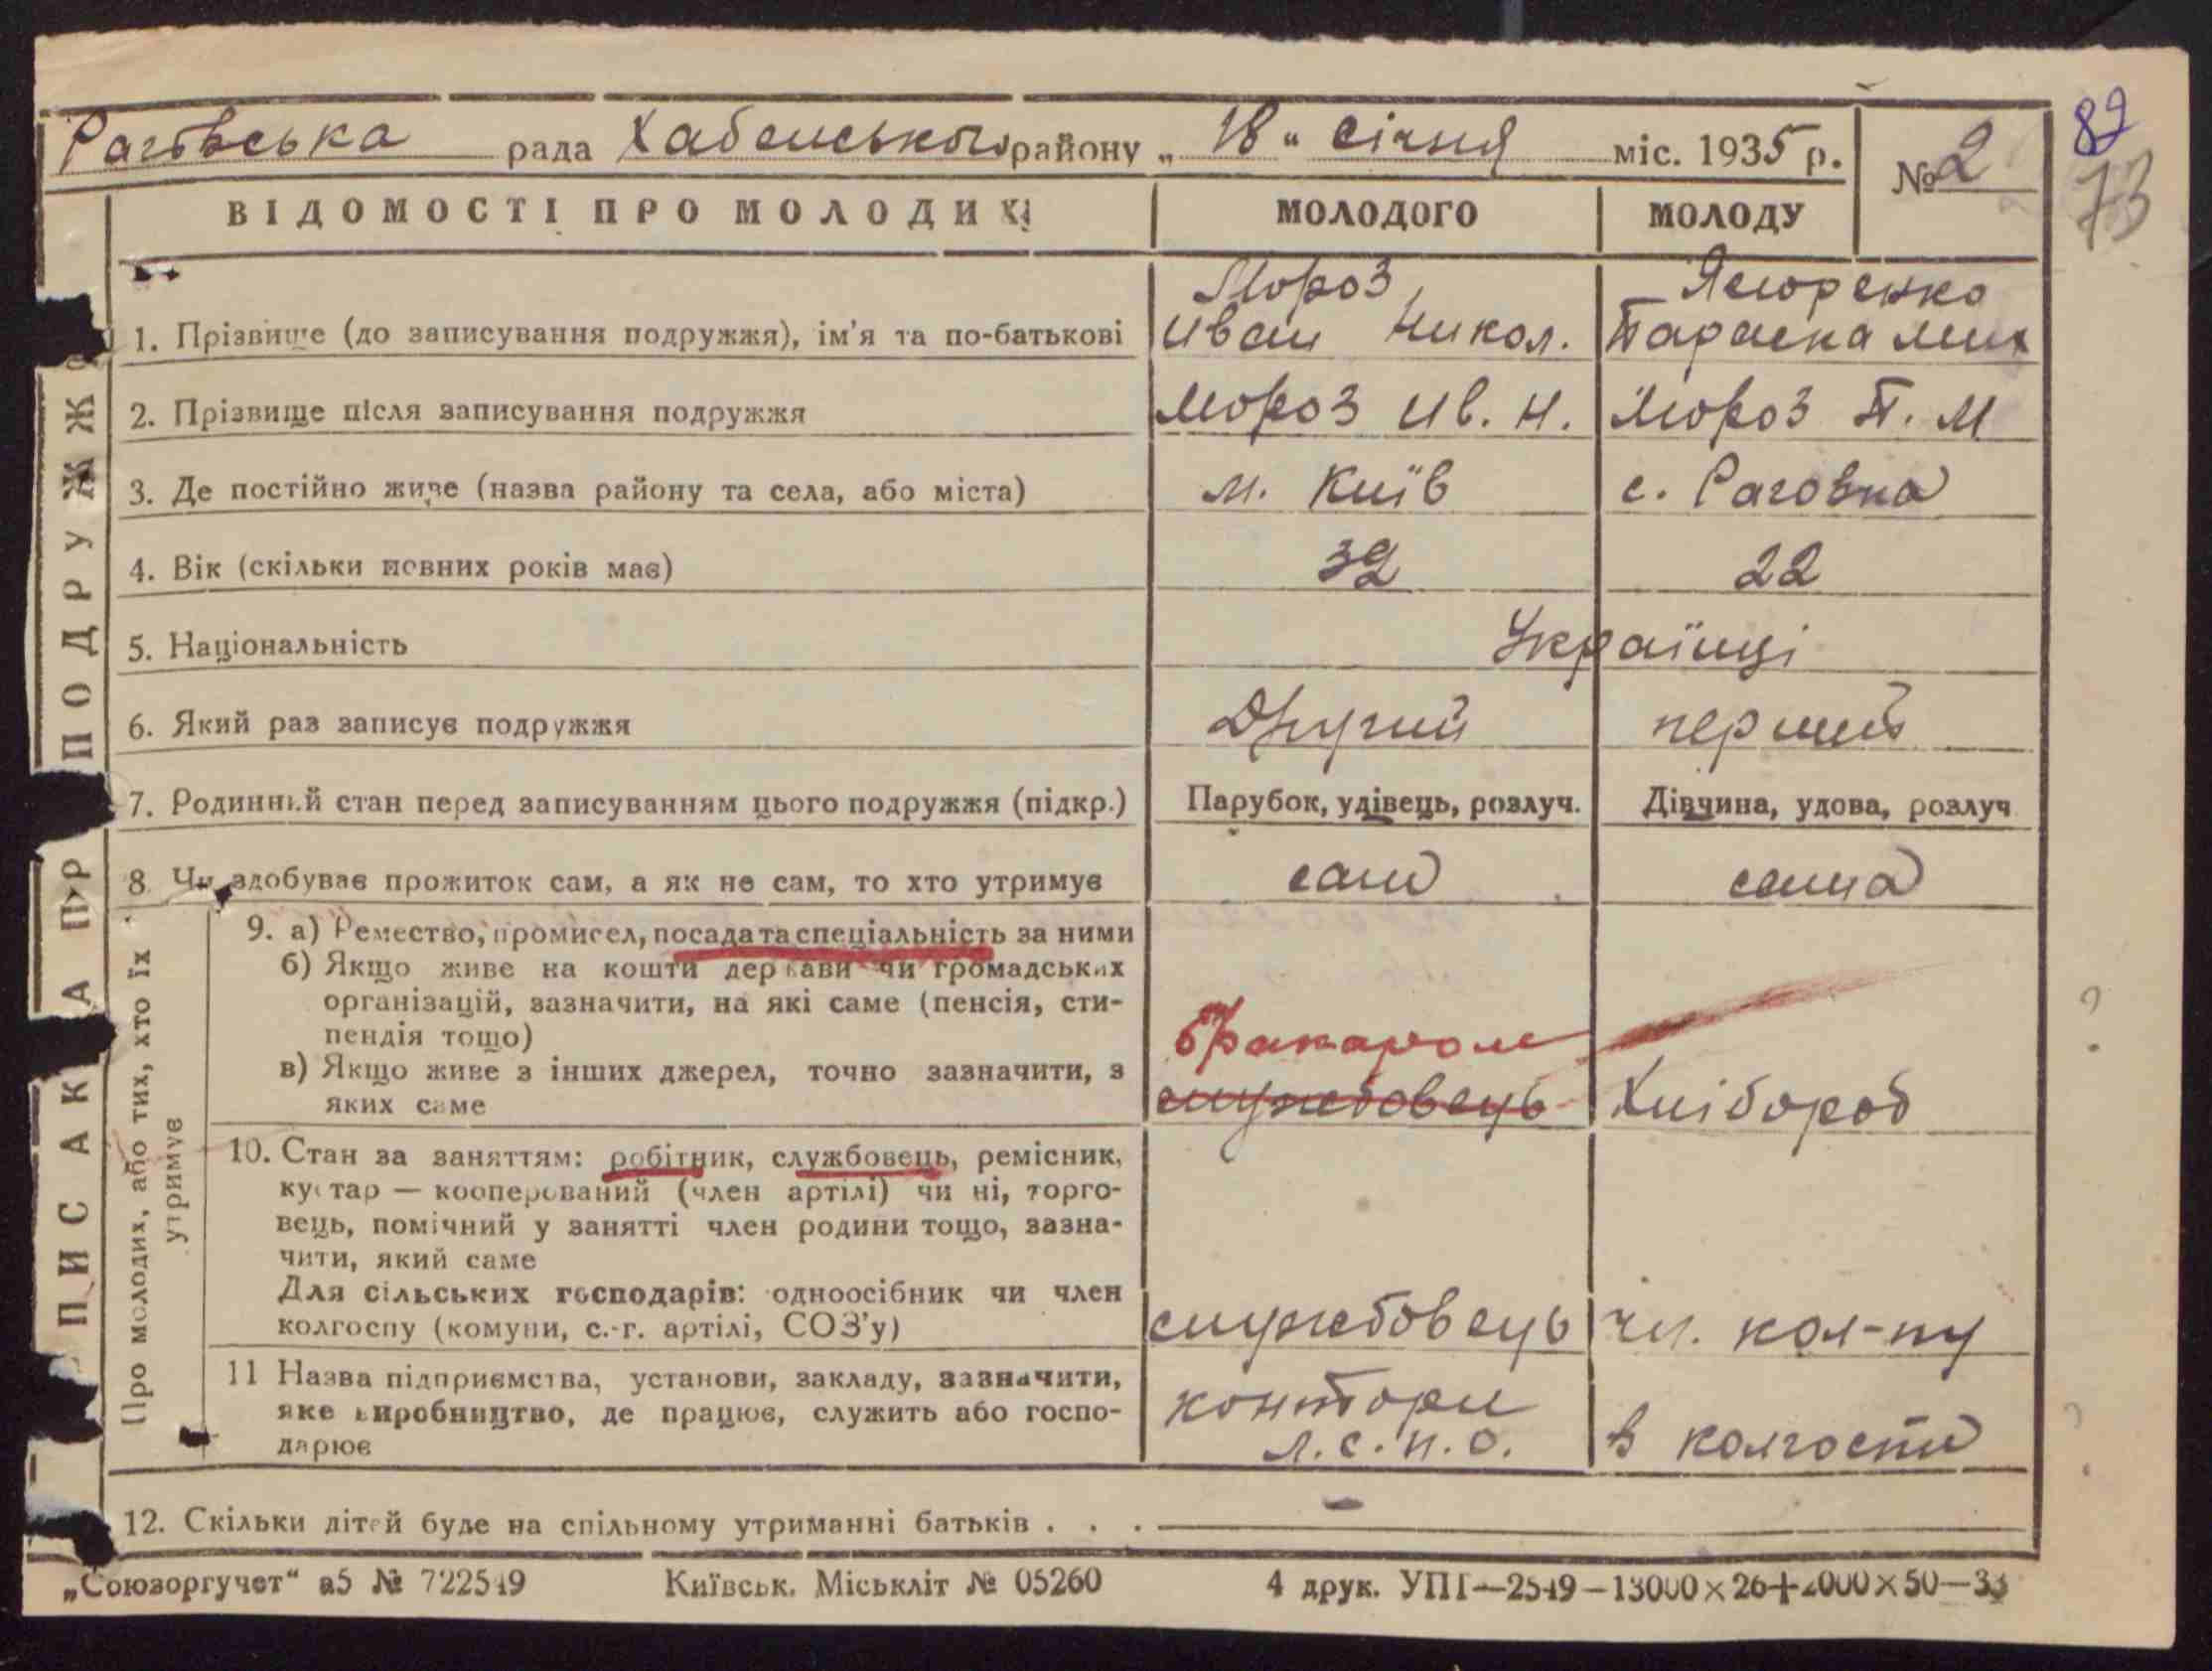 Раговська рада Хабенського району „ 18 " січня міс. 1935 р.
№ 2
82
73
ВІДОМОСТІ ПРО МОЛОДИХ
МОЛОДОГО
МОЛОДУ
1. Прізвище (до записування подружжя), ім'я та по-батькові
Мороз Иван Никол.
Параска Мих
2. Прізвище після записування подружжя
Мороз Ив. Н.
Мороз П. М
3. Де постійно живе (назва району та села, або міста)
м. Київ
с. Раговка
4. Вік (скільки повних років має)
32
22
5. Національність
Українці
6. Який раз записує подружжя
Другий
перший
7. Родинний стан перед записуванням цього подружжя (підкр.)
Парубок, удівець, розлуч.
Дівчина, удова, розлуч
8. Чи здобуває прожиток сам, а як не сам, то хто утримує
сам
сама
ЗАПИСКА ПРО ПОДРУЖЖЯ
Про молодих, або тих, хто їх утримує
9. а) Ремество, промисел, посада та спеціальність за ними
б) Якщо живе на кошти держави чи громадських
організацій, зазначити, на які саме (пенсія, сти-
пендія тощо)
в) Якщо живе з інших джерел, точно зазначити, з
яких саме
службовець
Хлібороб
10. Стан за заняттям: робітник, службовець, ремісник,
кустар — кооперований (член артілі) чи ні, торго-
вець, помічний у занятті член родини тощо, зазна-
чити, який саме
Для сільських господарів: одноосібник чи член
колгоспу (комуни, с.-г. артілі, СОЗ'у)
службовець
чл. кол-пу
11 Назва підприємства, установи, закладу, зазначити,
яке виробництво, де працює, служить або госпо-
дарює
контори
Л.С.П.О.
в колгоспі
12. Скільки дітей буде на спільному утриманні батьків . . .
—
„Союзоргучет“ а5 № 722549
Київськ. Міськліт № 05260
4 друк. УПП—2549—13000×26+2000×50—33